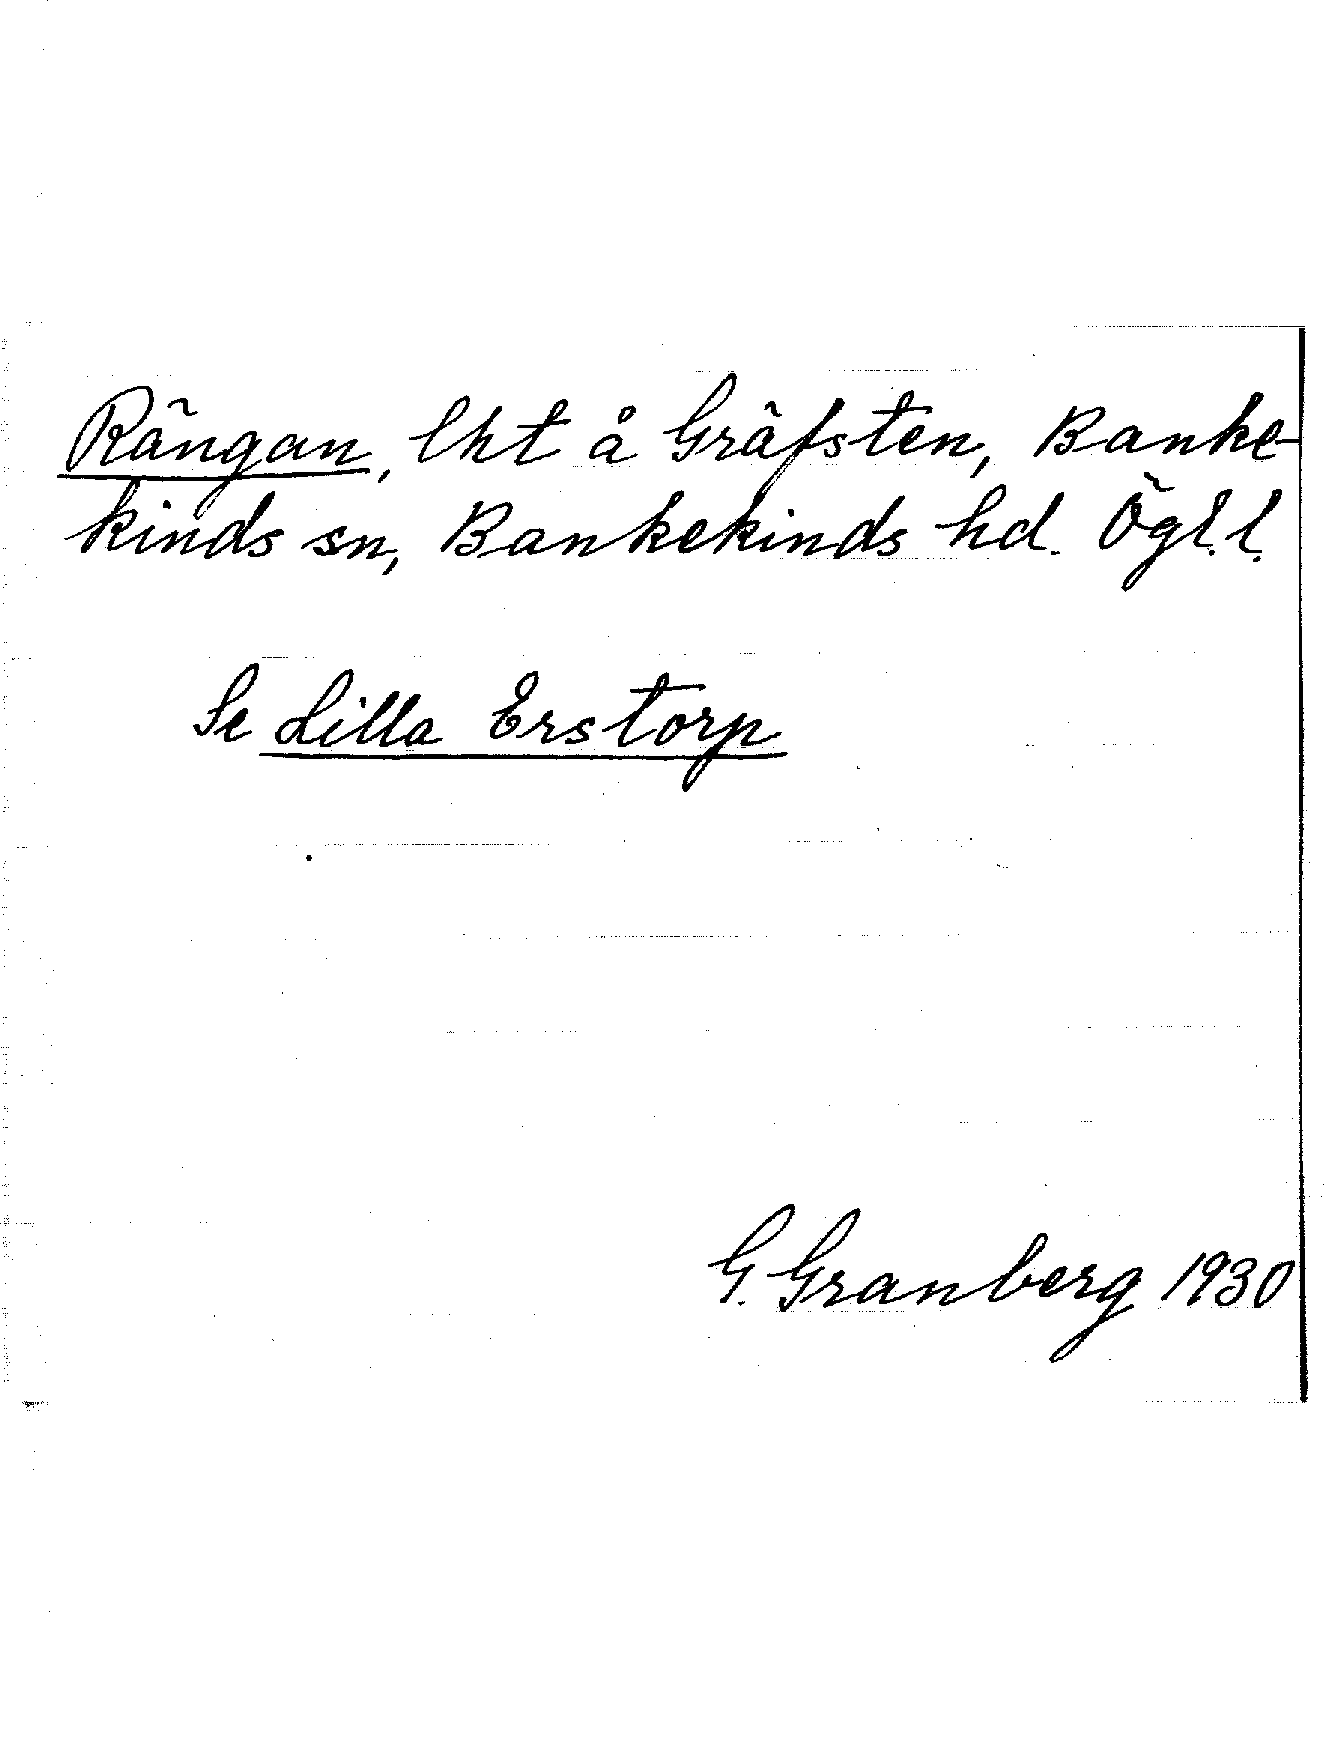 Rängan, lht å Gräfsten, Banke-
kinds sn, Bankekinds hd. Ögl. l.
Se Lilla Erstorp
G. Granberg 1930